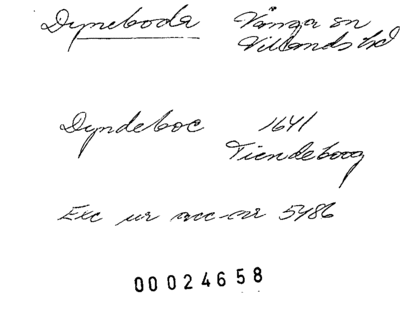 Dyneboda Vånga sn
Villands hd
Dyndeboc 1641
Tiendeboog
Exc ur acc-nr 5486
00024658